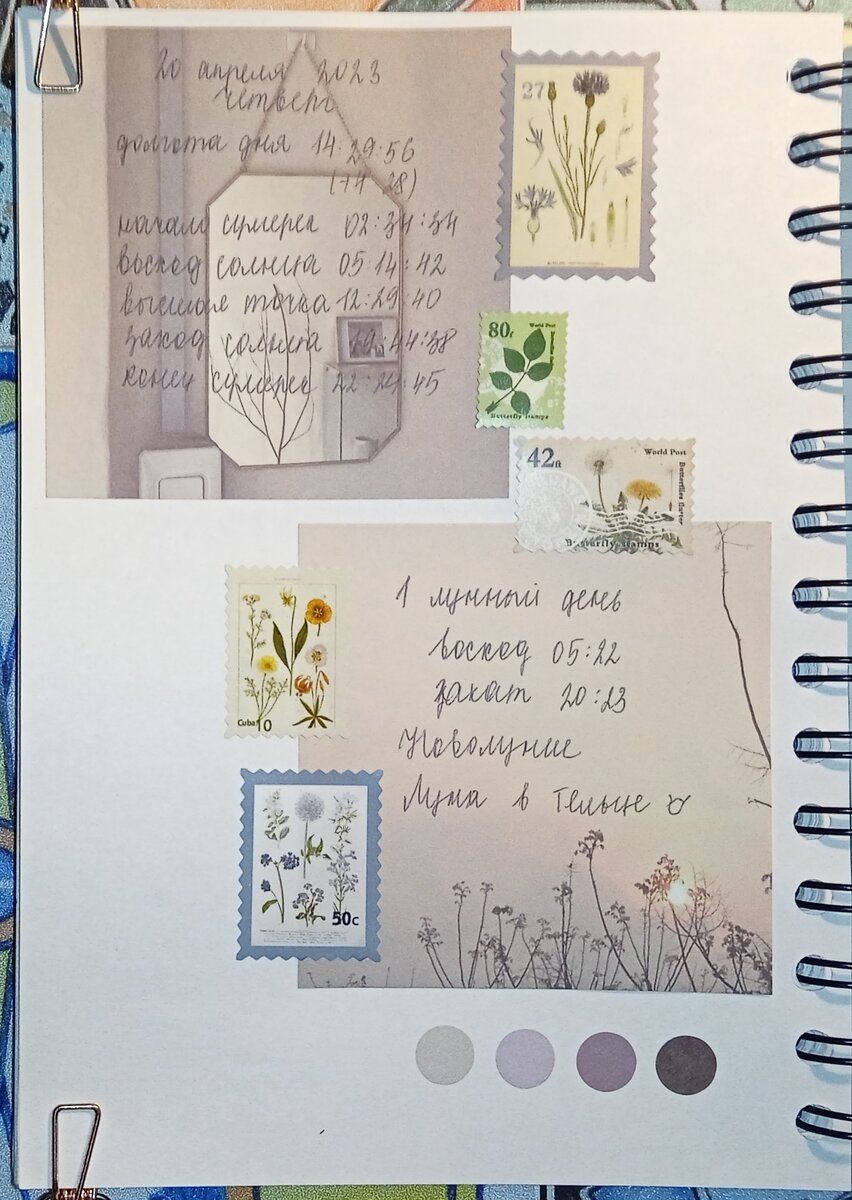 20 апреля 2023
четверг
долгота дня 14:29:56
(+4 28)
начало сумерек 02:34:34
восход солнца 05:14:42
высшая точка 12:29:40
заход солнца 19:44:38
конец сумерек 22:24:45
27
80f
World Post
Butterfly stamps
42ft
World Post
Butterfly stamps
1 лунный день
восход 05:22
закат 20:23
Новолуние
Луна в Тельце ♉
Cuba 10
50c